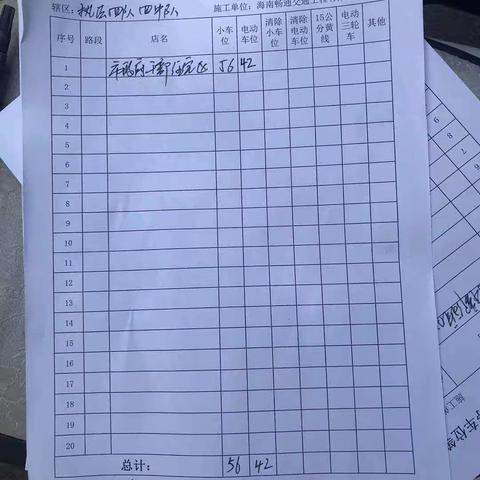 辖区：秋店四队四中队 施工单位：海南畅通交通工程有
序号 路段 店名 小车位 电动车位 清除小车位 清除电动车位 15公分黄线 电动三轮车 其他
1 市政府干部住宅区 56 42
2
3
4
5
6
7
8
9
10
11
12
13
14
15
16
17
18
19
20
总计： 56 42